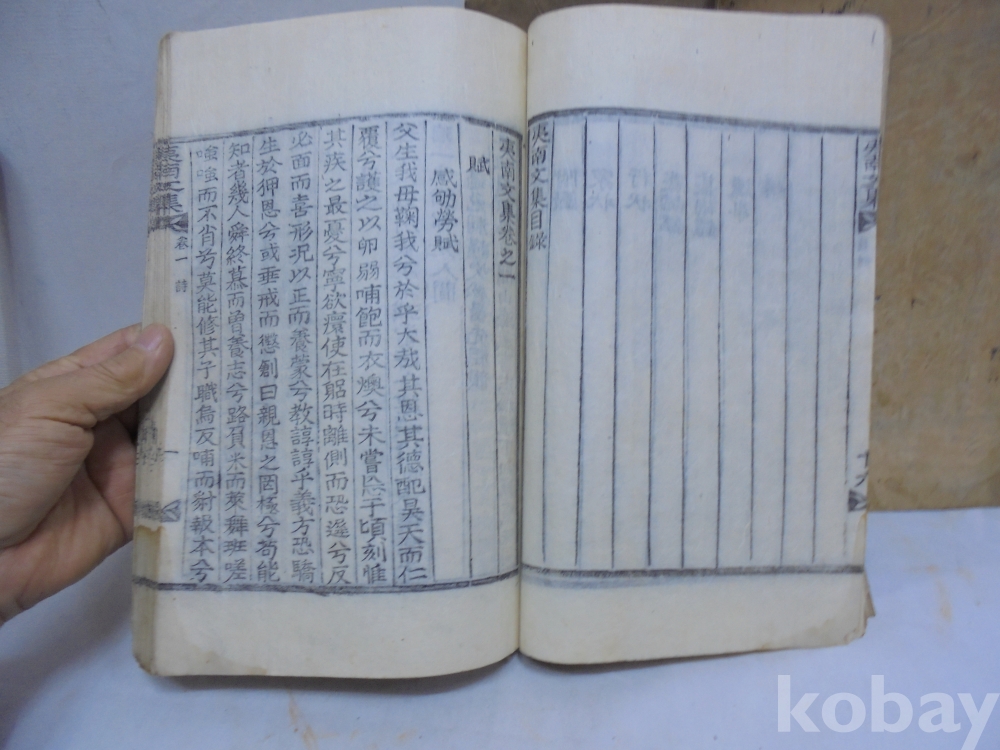 夷南文集目錄
夷南文集卷之一
賦
感劬勞賦
父生我母鞠我兮於乎大哉其恩其德配昊天而仁
覆兮護之以卵弱哺飽而衣燠兮未嘗 于頃刻惟
其疾之最憂兮寧欲 使在躬時離側而恐遲兮反
必面而喜形況以正而養蒙兮教諄諄乎義方恐驕
生於狎恩兮或垂戒而懲創曰親恩之罔極兮苟能
知者幾人舜終慕而曾養志兮路負米而萊舞班嗟
嗤嗤而不肖兮莫能修其子職烏反哺而豺報本兮
卷一
詩
一
kobay